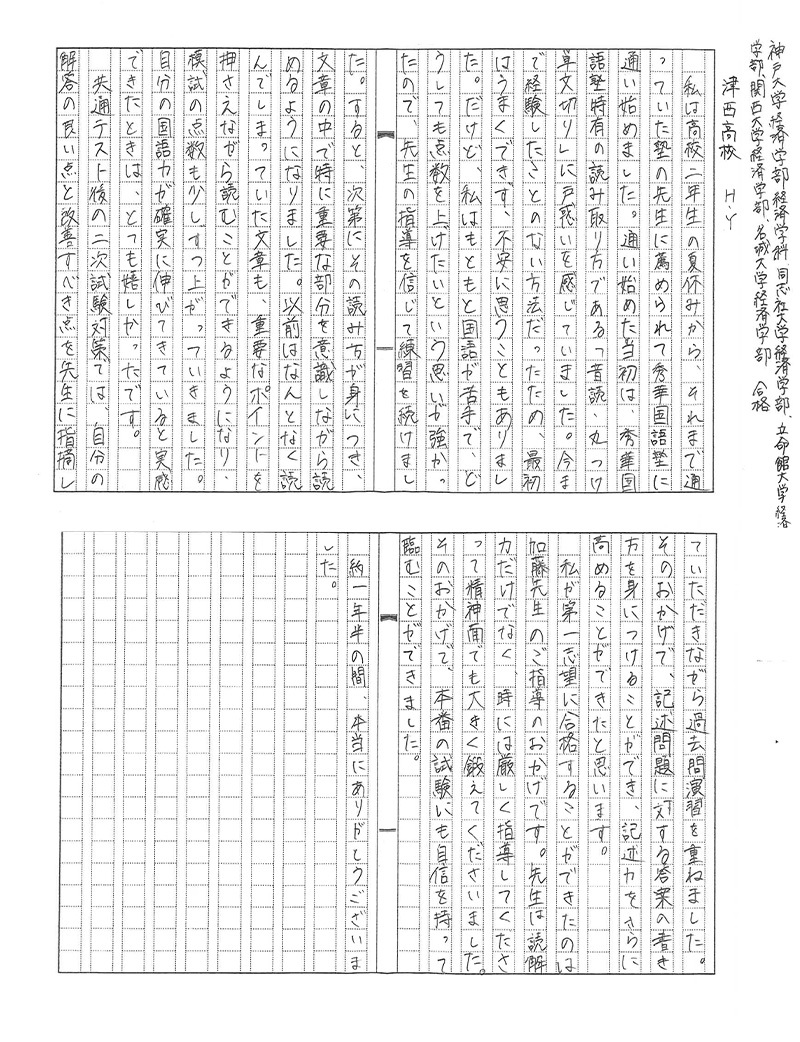 神戸大学経済学部経済学科 同志社大学経済学部、立命館大学経済
学部、関西大学経済学部、名城大学経済学部 合格
津西高校 H・Y
私は高校二年生の夏休みから、それまで通
っていた塾の先生に薦められて秀華国語塾に
通い始めました。通い始めた当初は、秀華国
語塾特有の読み取り方である「音読・丸つけ
単文切り」に戸惑いを感じていました。今ま
で経験したことのない方法だったため、最初
はうまくできず、不安に思うこともありまし
た。だけど、私はもともと国語が苦手で、ど
うしても点数を上げたいという思いが強かっ
たので、先生の指導を信じて練習を続けまし
た。すると、次第にその読み方が身につき、
文章の中で特に重要な部分を意識しながら読
めるようになりました。以前はなんとなく読
んでしまっていた文章も、重要なポイントを
押さえながら読むことができるようになり、
模試の点数も少しずつ上がっていきました。
自分の国語力が確実に伸びてきていると実感
できたときは、とても嬉しかったです。
共通テスト後の二次試験対策では、自分の
解答の良い点と改善すべき点を先生に指摘し
ていただきながら過去問演習を重ねました。
そのおかげで、記述問題に対する答案の書き
方を身につけることができ、記述力をさらに
高めることができたと思います。
私が第一志望に合格することができたのは
加藤先生のご指導のおかげです。先生は読解
力だけでなく、時には厳しく指導してくださ
って精神面でも大きく鍛えてくださいました。
そのおかげで、本番の試験にも自信を持って
臨むことができました。
約一年半の間、本当にありがとうございま
した。